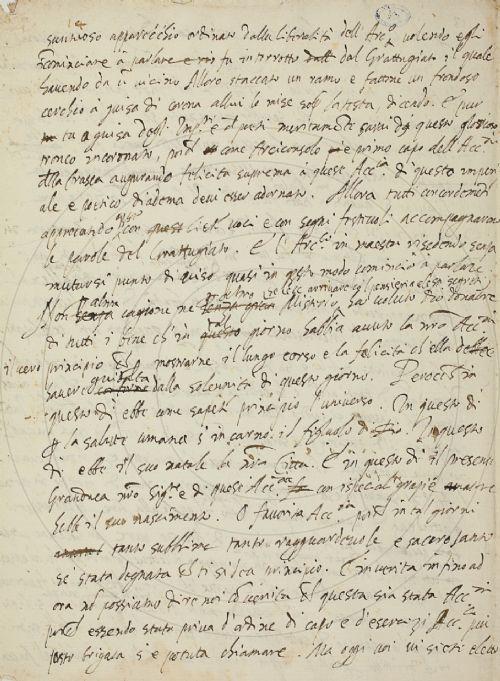 suntuoso apparecchio ordinato dalla liberalità dell' Arc.° volendo egli
cominciare à parlare fu interrotto dal Grattugiato il quale
havendo da vicino Alloro staccato un ramo e fattone un frondoso
cerchio à guisa di corona à lui lo mise sopra la testa, dicendo. E pur
tu à guisa degli Imp.ri e de Poeti meritamente sarai di questo glorioso
tronco incoronato, come Arciconsolo e primo capo dell' Acc.
della Crusca augurando felicità suprema à quest' Acc. di questo imperi
ale e poetico diadema devi esser adornato. Allora tutti concordemente
approvando con liete voci e con segni festevoli accompagnarono
le parole del Grattugiato. E l' Arc. in maestà risedendo senza
mutarsi punto di viso quasi in questo modo cominciò a parlare
Non senza cagione ne senza misterio, ha voluto Dio donatore
di tutti i bene ch' in questo giorno habbia avuto la nostra Acc.
il vero principio mostrarne il lungo corso e la felicità ch'ella debbe
havere dalla solennità di questo giorno. Perocchè in
questo dì ebbe come sapete principio l' universo. In questo dì
p la salute umana s' incarnò il figliuolo di Dio. In questo
dì ebbe il suo natale la nostra Città. E in questo dì il presente
Granduca nro Sig.re e di quest' Acc. con ispecial
hebbe il suo nascimento. O favorita Acc. poi che in tal giorni
tanto sublime tanto ragguardevole e sacrosanto
se stata degnata che ti si dia principio. E in verità infino ad
ora non possiamo dire noi che questa sia stata Acc.
perché essendo stata priva d' ordine di capo e d' esercizi Acc. più
tosto brigata s' è potuta chiamare. Ma oggi voi vi siete eletto